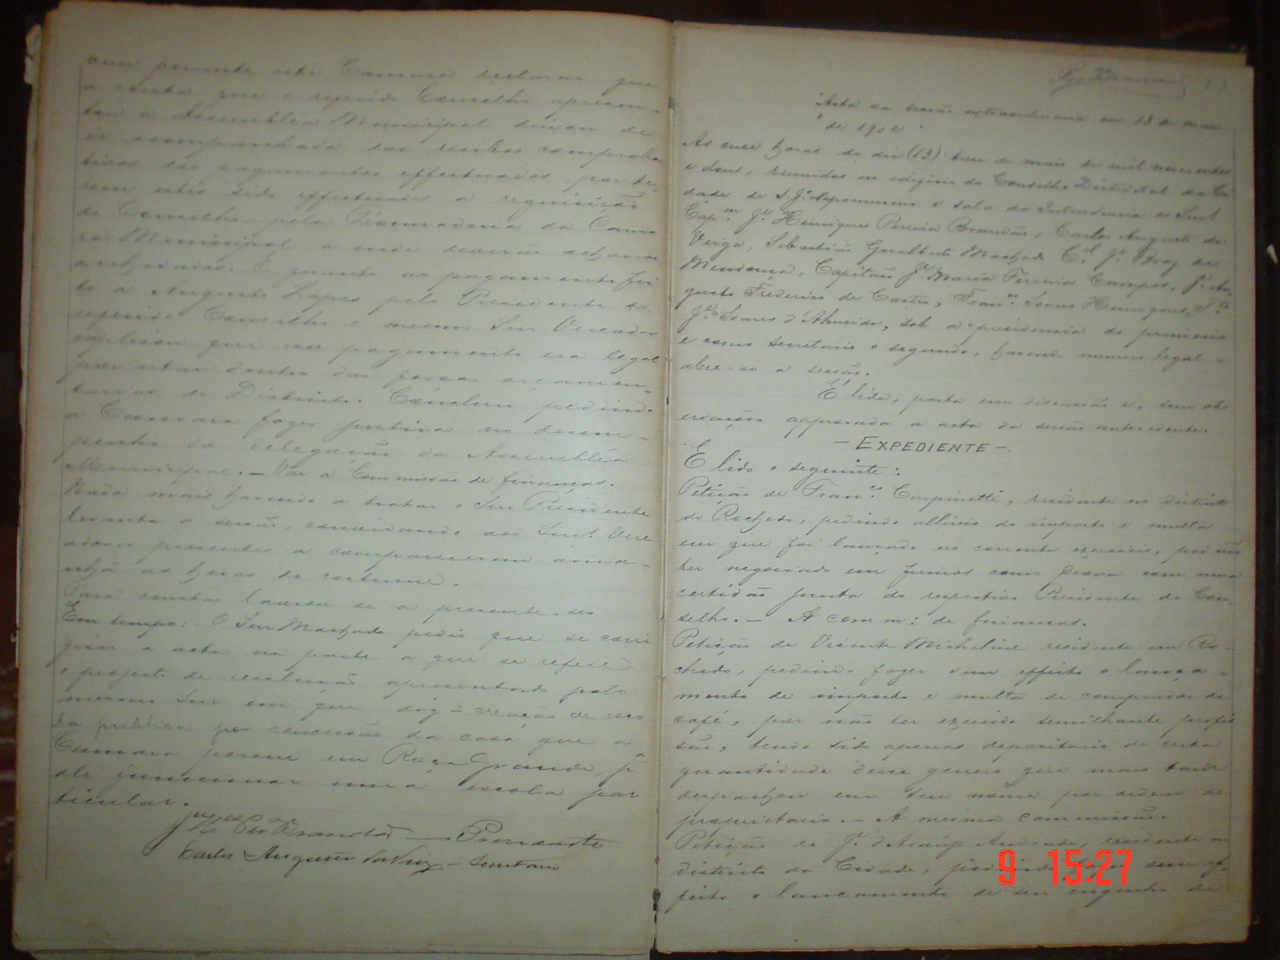 perante esta Camara declarar que
a conta que o referido Conselho apresen-
tou a Assembléa Municipal deixou de
ir acompanhada dos recibos comproba
tivos dos pagamentos effectuados, por te-
rem estes sido effectuados a requisição
do Conselho pela Procuradoria da Cama
ra Municipal a onde deverão achar-se
archivados. E quanto ao pagamento fei
to a Augusto Lopes pelo Presidente do
referido Conselho o mesmo Snr Vereador
explicou que esse pagamento era legal
por estar dentro das forças orçamen-
tarias do Districto. Concluiu pedindo
a Camara fazer justiça no desem-
penho da delegação da Assembléa
Municipal. — Vae a Commissão de finanças.
Nada mais havendo a tratar o Snr Presidente
levanta a sessão, convidando aos Snrs Vere
adores presentes a comparecerem ama-
nhã as horas do costume.
Para constar lavrou se a presente
Em tempo: O Snr Machado pediu que se corri
gisse a acta na parte a que se refere
o projecto de resolução apresentado pelo
mesmo Snr em que diz — creação de esco
la publica por concessão da casa que a
Camara possue em Roça Grande, pª
ali funccionar uma escola par
ticular.
Brandão — Presidente
Carlos Augusto da Veiga — Secretario
Brandão
Acta da sessão extraordinaria em 13 de maio
de 1902
As onze horas do dia (13) treze de maio de mil novecentos
e dous, reunidos no edificio do Conselho Districtal da Ci
dade de S. Jº Nepomuceno e sala da Intendencia os Snrs
Capm Jé Henriques Pereira Brandão, Carlos Augusto da
Veiga, Sebastião Gualberto Machado Cel Jé Braz de
Mendonça, Capitão Jé Maria Ferreira Campos, Jé Au-
gusto Frederico de Castro, Franco Soares Henriques,
Jé Soares d'Almeida, sob a presidencia do primeiro
e como secretario o segundo, havendo numero legal -
abre-se a sessão.
É lida, posta em discussão e, sem obs
ervação approvada a acta da sessão antecedente.
— EXPEDIENTE —
É lido o seguinte:
Petição de Franco Carpinetti, residente no districto
do Rochedo, pedindo allivio do imposto e multa
em que foi lançado no corrente exercicio, por não
ter negociado em fumos como prova com uma
certidão junta do respectivo Presidente do Con-
selho. — A comm: de finanças.
Petição de Vicente Micheline residente em Ro-
chedo, pedindo fazer sem effeito o lança-
mento de imposto e multa de comprador de
café, por não ter exercido semilhante profis
são, tendo sido apenas depositario de certa
quantidade desse genero que mais tarde
despachou em seu nome por ordem do
proprietario. — A mesma commissão.
Petição de Jé d'Araujo Andrade, residente no
districto da Cidade, pedindo sem ef
feito o lançamento de seu engenho de
9 15:27